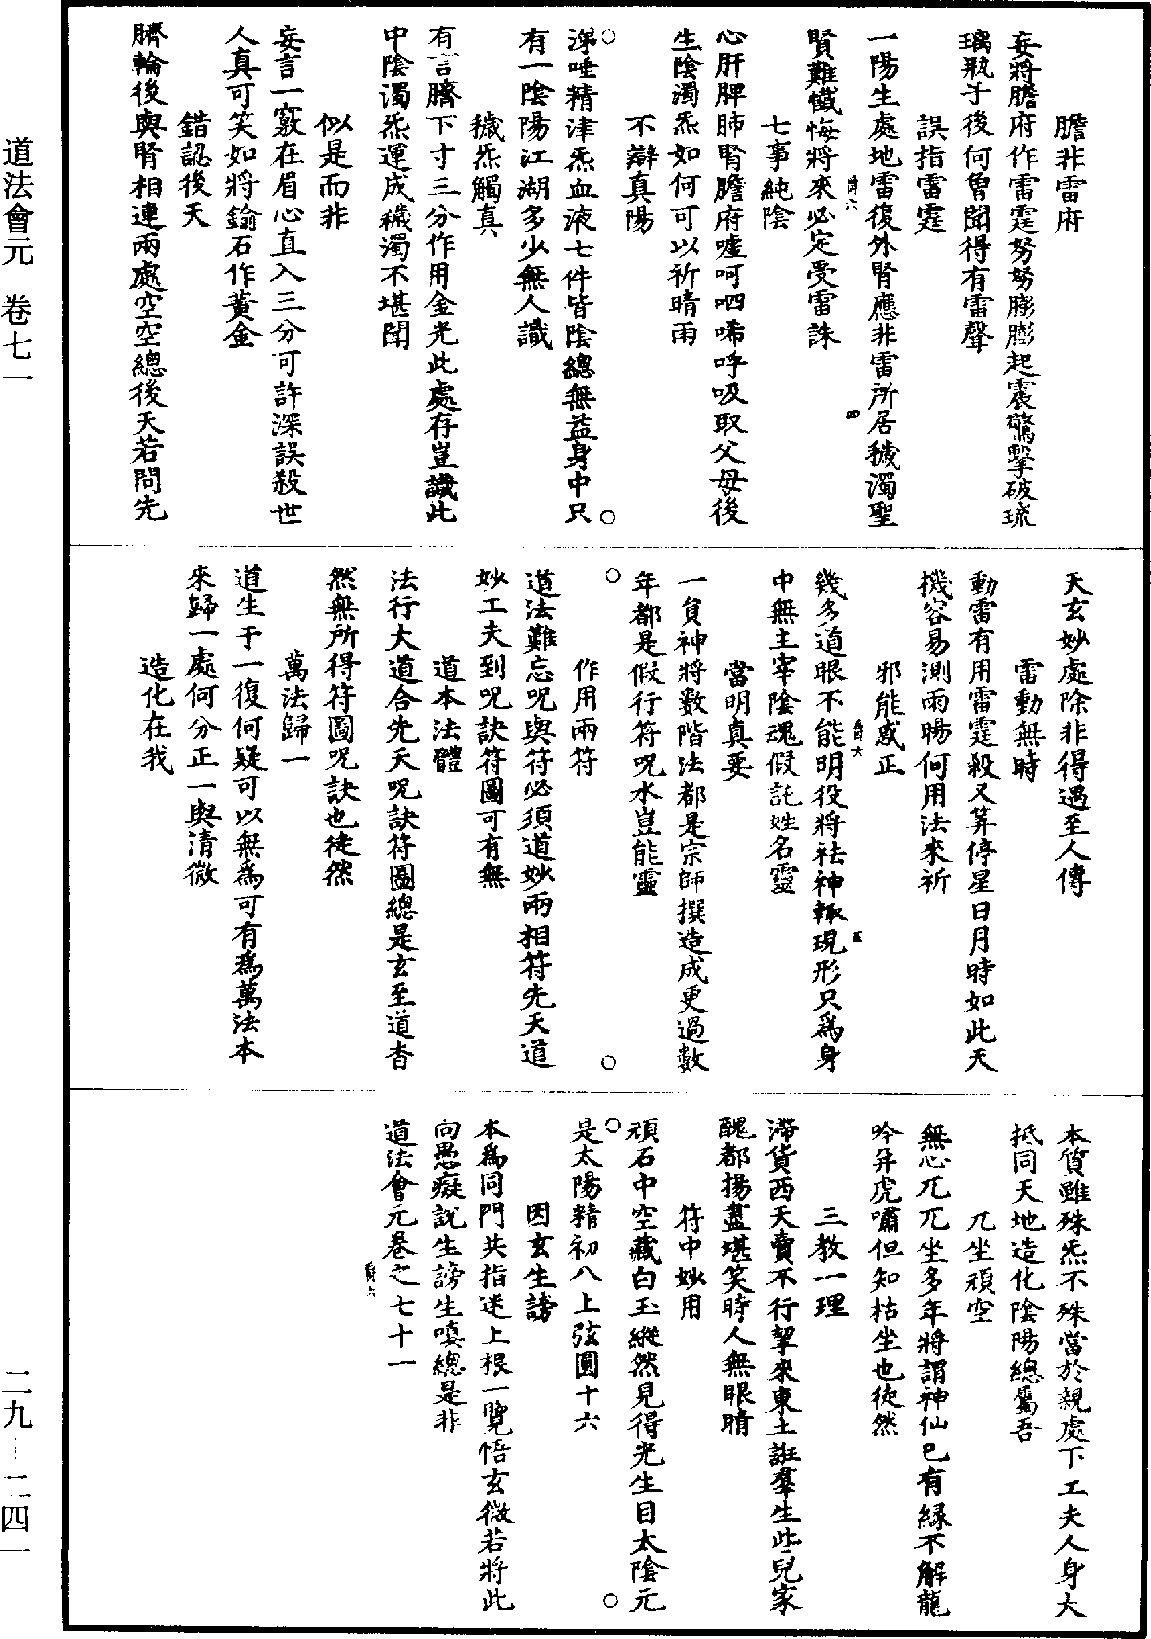 膽非雷府
妄將膽府作雷霆努努膨膨起震驚擊破琉
璃瓶子後何曾聞得有雷聲
誤指雷霆
一陽生處地雷復外腎應非雷所居穢濁聖
賢難懺悔將來必定受雷誅
七事純陰
心肝脾肺腎膽府噓呵呬唏呼吸取父母後
生陰濁炁如何可以祈晴雨
不辯真陽
涕唾精津炁血液七件皆陰總無益身中只
有一陰陽江湖多少無人識
穢炁觸真
有言臍下寸三分作用金光此處存豈識此
中陰濁炁運成穢濁不堪聞
似是而非
妄言一竅在眉心直入三分可許深誤殺世
人真可笑如將鍮石作黃金
錯認後天
臍輪後與腎相連兩處空空總後天若問先
天玄妙處除非得遇至人傳
雷動無時
動雷有用雷霆殺又筭停星日月時如此天
機容易測雨暘何用法來祈
邪能惑正
幾多道眼不能明役將祛神輙現形只為身
中無主宰陰魂假託姓名靈
當明真要
一負神將數階法都是宗師撰造成更過數
年都是假行符呪水豈能靈
作用兩符
道法難忘呪與符必須道妙兩相符先天道
妙工夫到呪訣符圖可有無
道本法體
法行大道合先天呪訣符圖總是玄至道杳
然無所得符圖呪訣也徒然
萬法歸一
道生于一復何疑可以無為可有為萬法本
來歸一處何分正一與清微
造化在我
本質雖殊炁不殊當於親處下工夫人身大
抵同天地造化陰陽總屬吾
兀坐頑空
無心兀兀坐多年將謂神仙已有緣不解龍
吟并虎嘯但知枯坐也徒然
三教一理
滯貨西天賣不行挈來東土誑羣生些兒家
醜都揚盡堪笑時人無眼睛
符中妙用
頑石中空藏白玉縱然見得光生目太陰元
是太陽精初八上弦圓十六
因玄生謗
本為同門共指迷上根一覽悟玄微若將此
向愚癡說生謗生嗔總是非
道法會元卷之七十一
道法會元 卷七一
二九—二四一